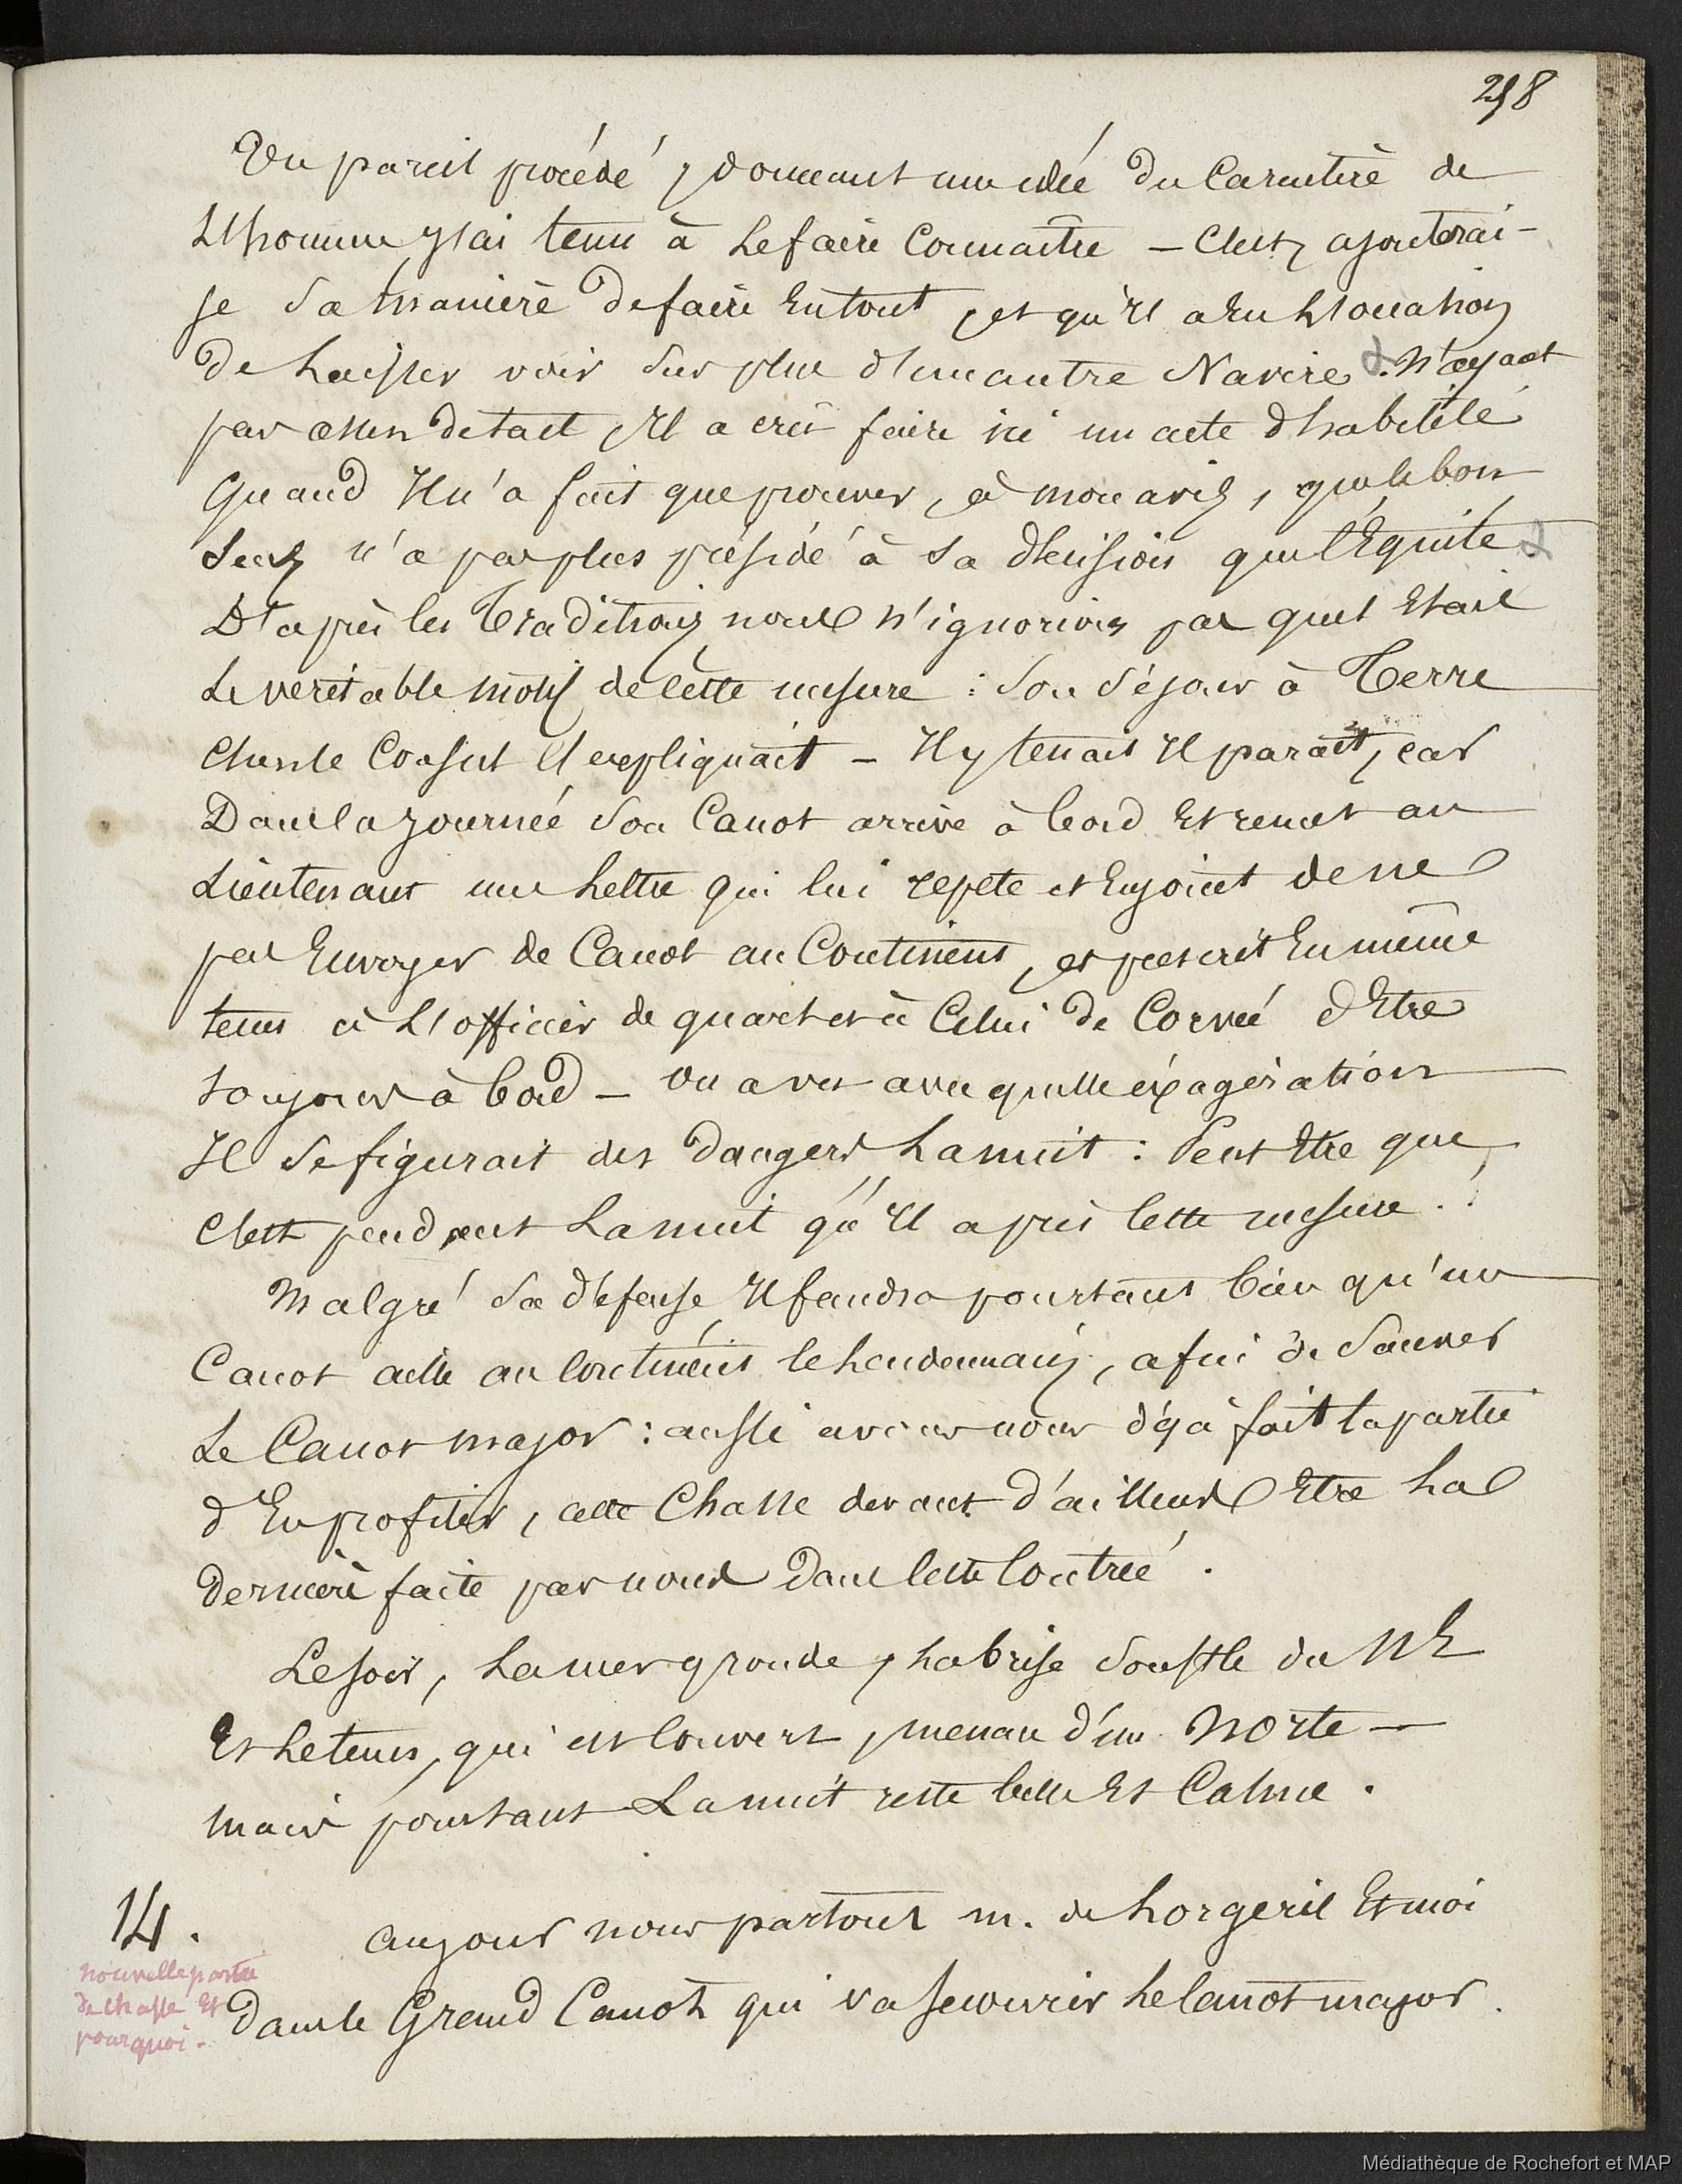 258
Un pareil procédé, donnant une idée du Caractère de
L'homme, j'ai tenu à Le faire Connaître — C'est, ajouterai-
je Sa Manière de faire En tout, et qu'Il a Eu L'occasion
de Laisser voir Sur plus d'un autre Navire. N'ayant
pas assez de tact, Il a crû faire ici un acte d'habileté
Quand Il n'a fait que prouver, à mon avis, que le bon
Sens n'a pas plus présidé à Sa décision que l'Equité.
D'après les Traditions nous n'ignorions pas quel Etait
Le veritable motif de Cette mesure : Son Séjour à Terre
Chez le Consul l'expliquait — Il y tenait Il paraît, car
Dans la journée Son Canot arrive à bord Et remet au
Lieutenant une Lettre qui lui repete et Enjoint de ne
pas Envoyer de Canot au Continent, et prescrit En même
tems à L'officier de quart et à Celui de Corvée d'Etre
toujours à bord — On a vu avec quelle éxagération
Il Se figurait des Dangers La nuit : Peut Etre que,
C'est pendant La nuit qu'Il a pris Cette mesure . !
Malgré Sa défense, Il faudra pourtant bien qu'un
Canot aille au Continent le Lendemain, afin de Sauver
Le Canot major : aussi avons nous déjà fait la partie
d'En profiter, cette Chasse devant d'ailleurs Etre La
dernière faite par nous Dans Cette Contrée .
Le soir, La mer gronde, La brise Souffle du NE
Et Le tems, qui est Couvert, menace d'un Norte —
Mais pourtant La nuit reste belle Et Calme .
14.
nouvelle partie
de chasse Et
pourquoi .
au jour nous partons M. de Lorgeril Et moi
dans le Grand Canot qui va secourir Le Canot major .
Médiathèque de Rochefort et MAP